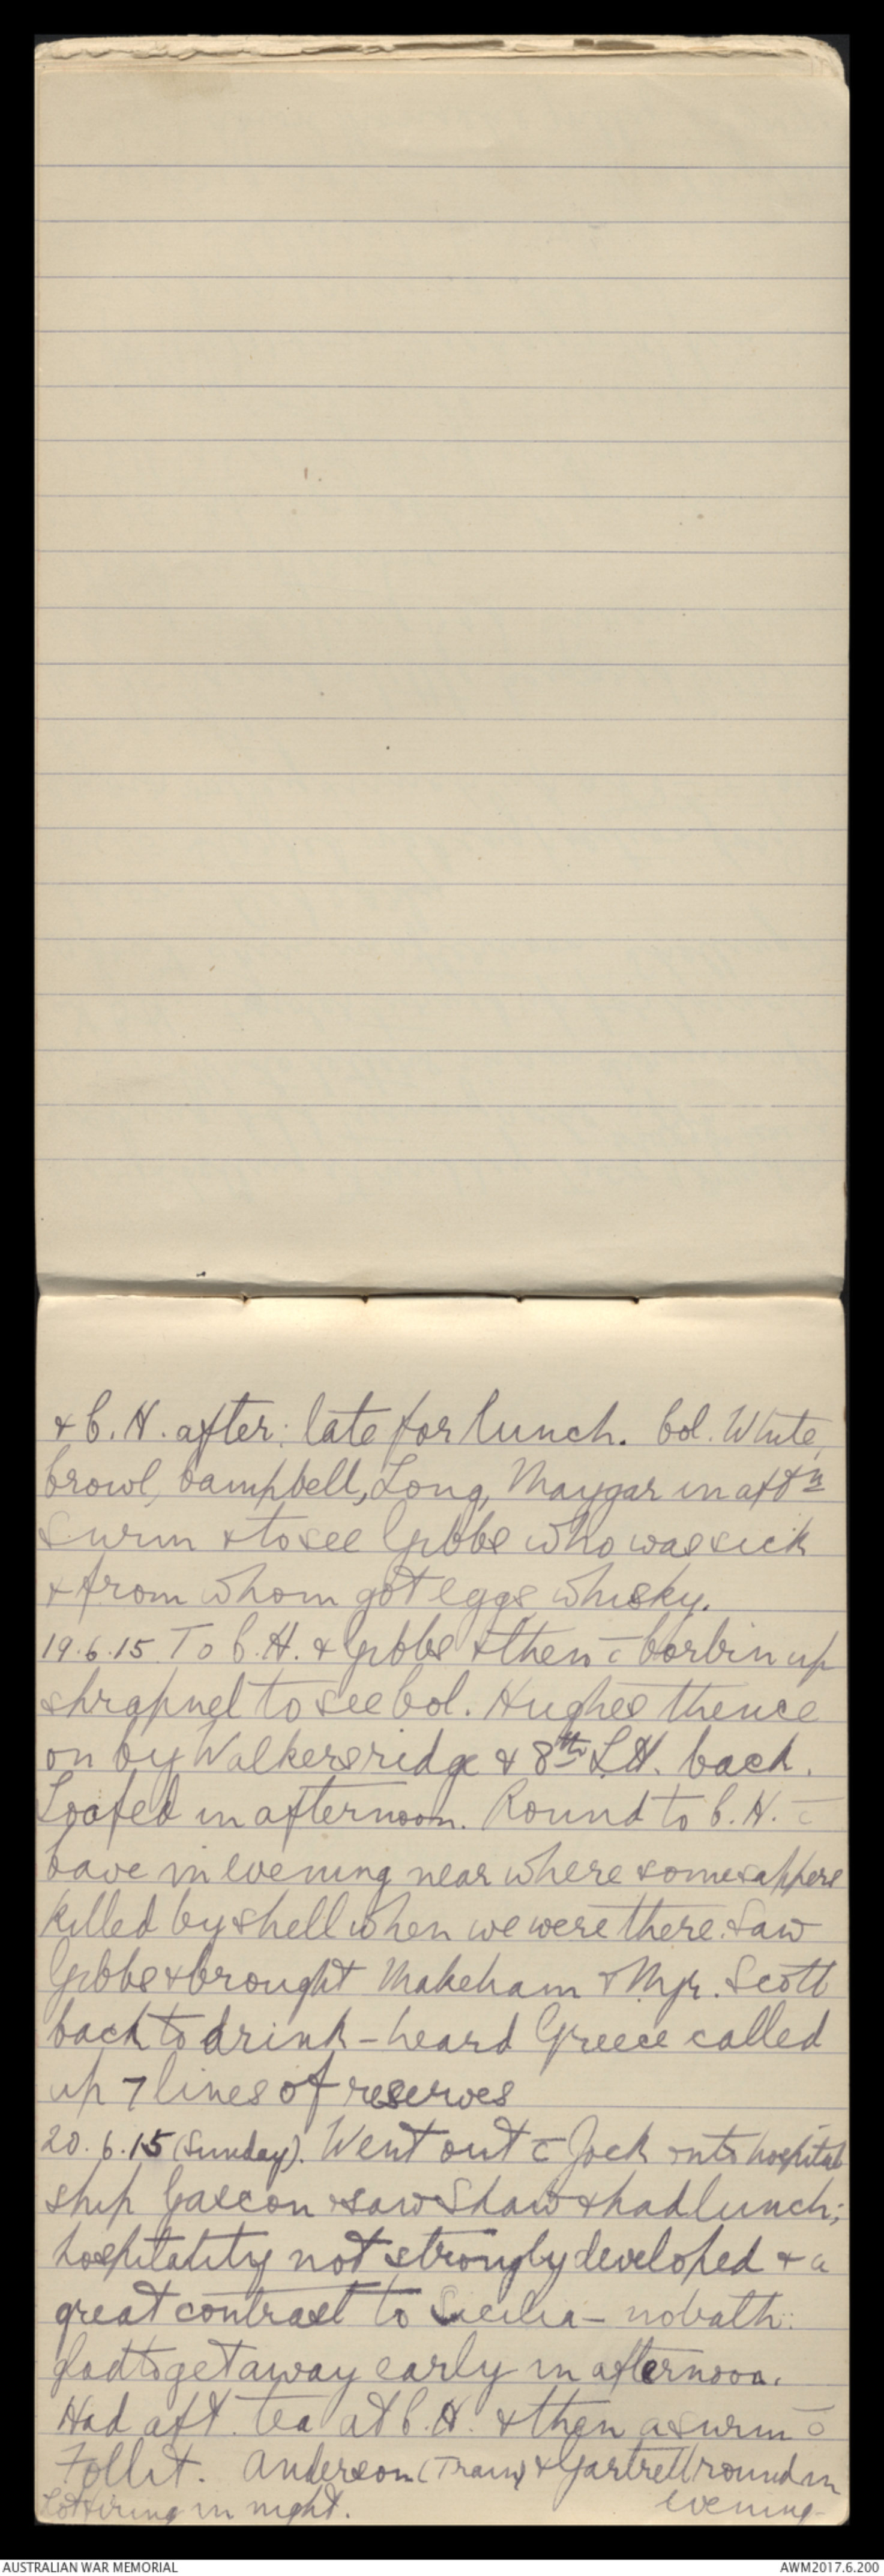 & C.H. after: late for lunch. Col. White,
Crowl, Campbell, Long, Maygar in aftn
Swim & to see Gibbs who was sick
& from whom got eggs whisky.
19.6.15 To C.H. & Gibbs & then c̄ Corbin up
shrapnel to see Col. Hughes thence
on by Walkers ridge & 8th L.H. back.
Loafed in afternoon. Round to C.H. c̄
Dave in evening near where some sappers
killed by shell when we were there. Saw
Gibbs & brought Makeham & Mjr. Scott
back to drink – heard Greece called
up 7 lines of reserves
20.6.15 (Sunday). Went out c̄ Jock onto hospital
ship Gascon & saw Shaw & had lunch;
hospitality not strongly developed & a
great contrast to Sicilia – no bath:
glad to get away early in afternoon.
Had aft. tea at C.H. & then a swim c̄
Follit. Anderson (Train) & Gartrell round in
evening.
Lot firing in night.
AUSTRALIAN WAR MEMORIAL
AWM2017.6.200